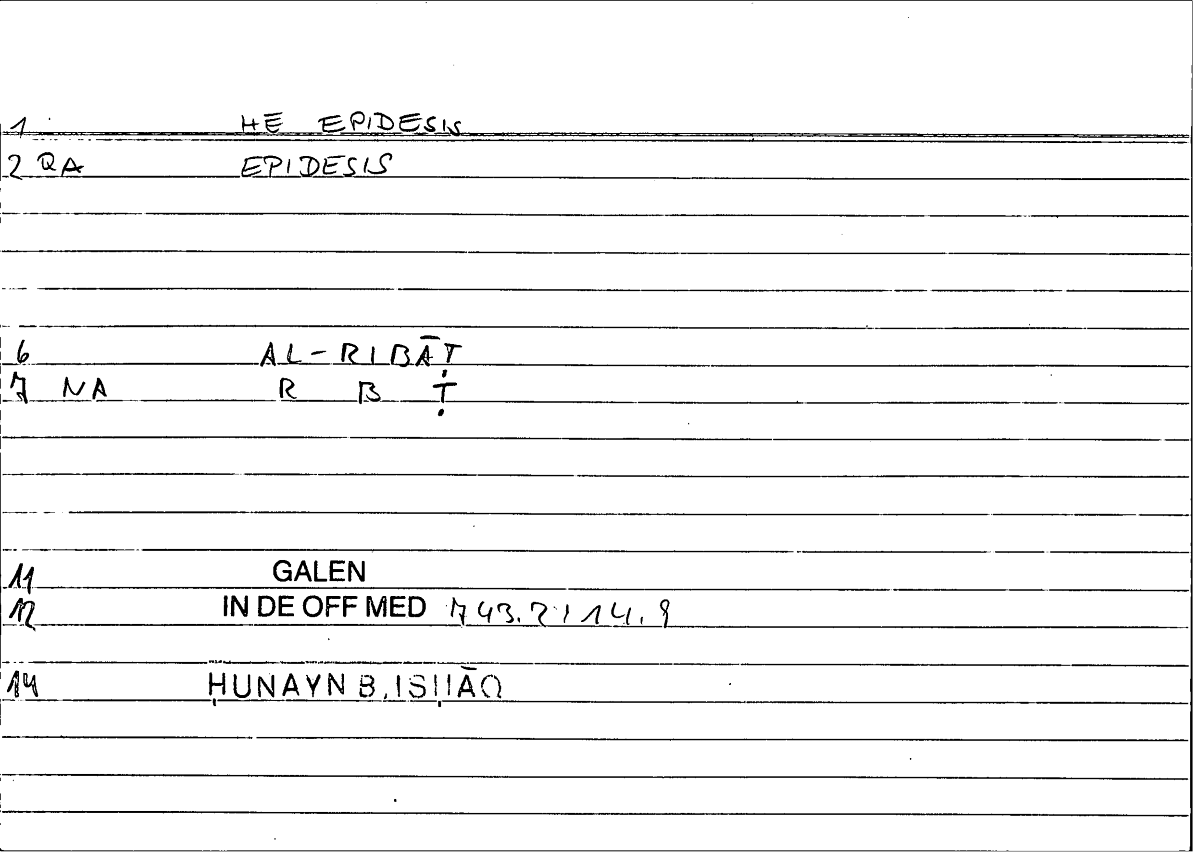 1 HĒ EPIDESIS
2 QA EPIDESIS
6 AL-RIBĀṬ
7 NA R B Ṭ
11 GALEN
12 IN DE OFF MED 743.2 / 14.9
14 ḤUNAYN B. ISḤĀQ